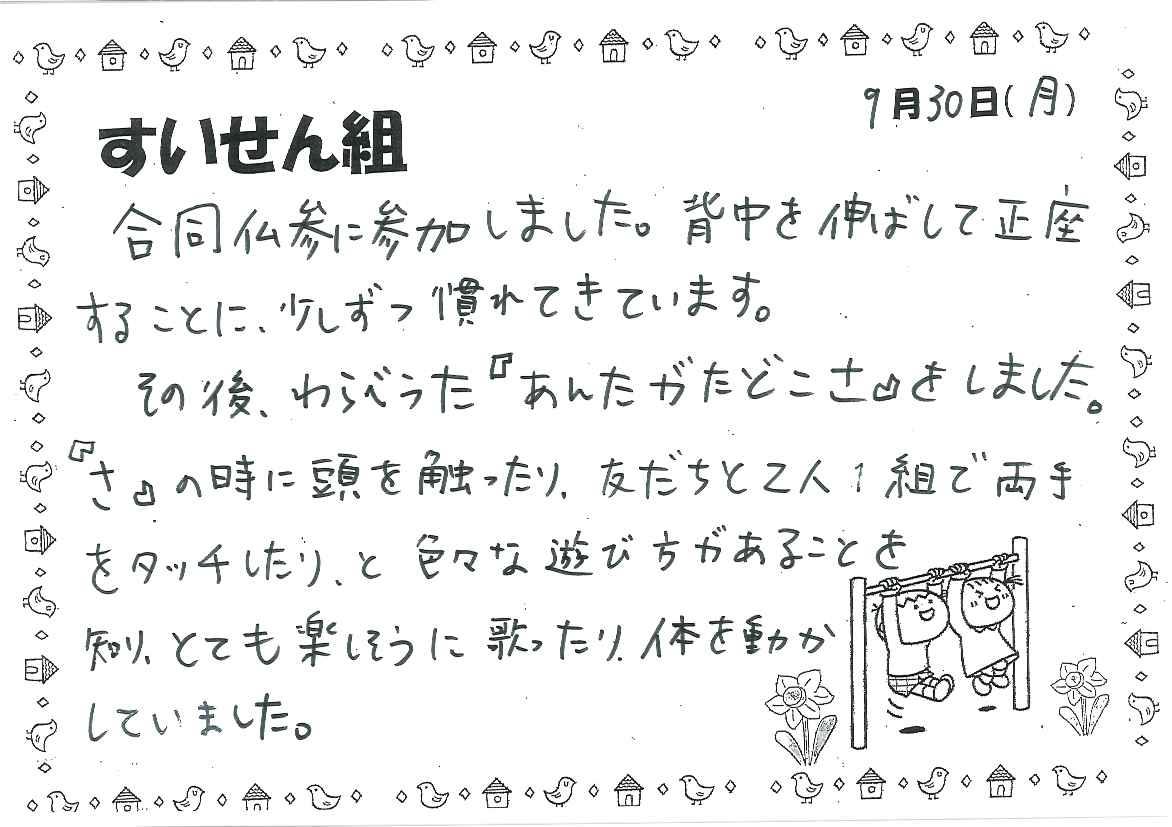 9月30日(月)
すいせん組
合同仏参に参加しました。背中を伸ばして正座
することに、少しずつ慣れてきています。
その後、わらべうた『あんたがたどこさ』をしました。
『さ』の時に頭を触ったり、友だちと2人1組で両手
をタッチしたり、と色々な遊び方があることを
知り、とても楽しそうに歌ったり、体を動か
していました。